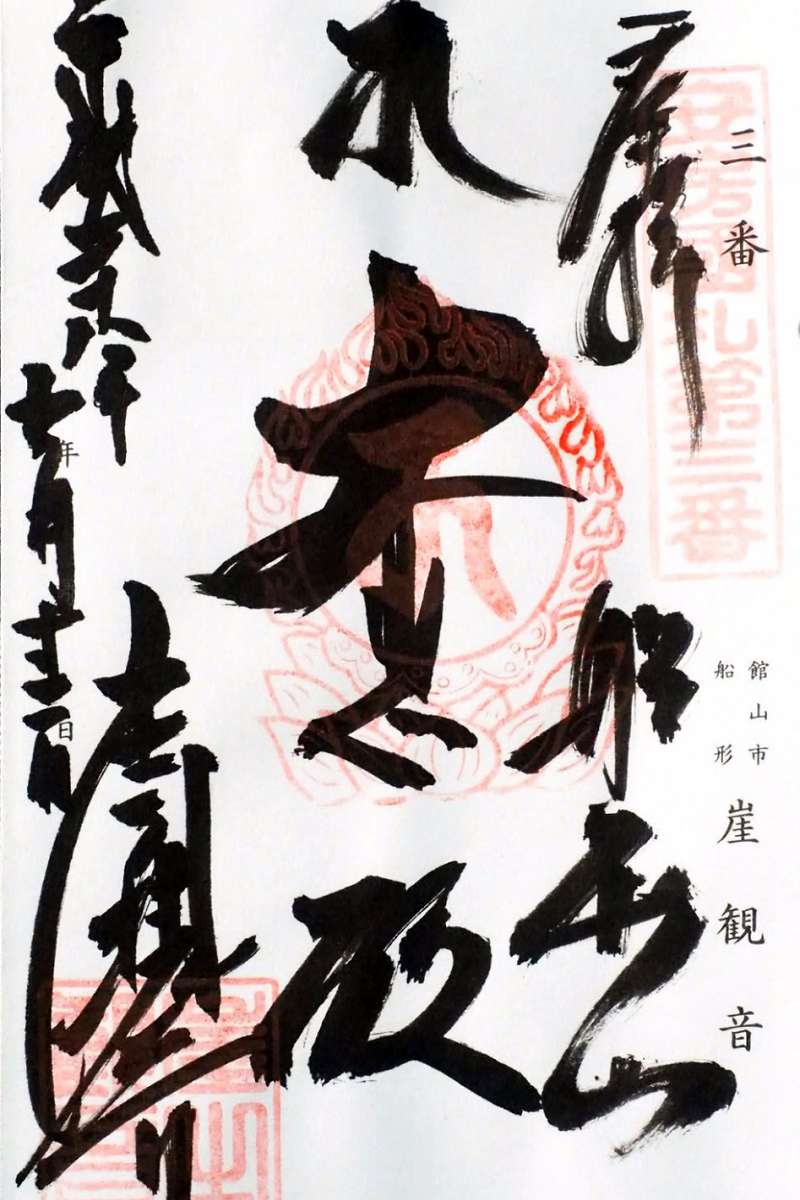 三番
館山市
船形
崖観音
安房國札第三番
奉拝
船形山
大悲殿
平成二十八年
七月
年
日